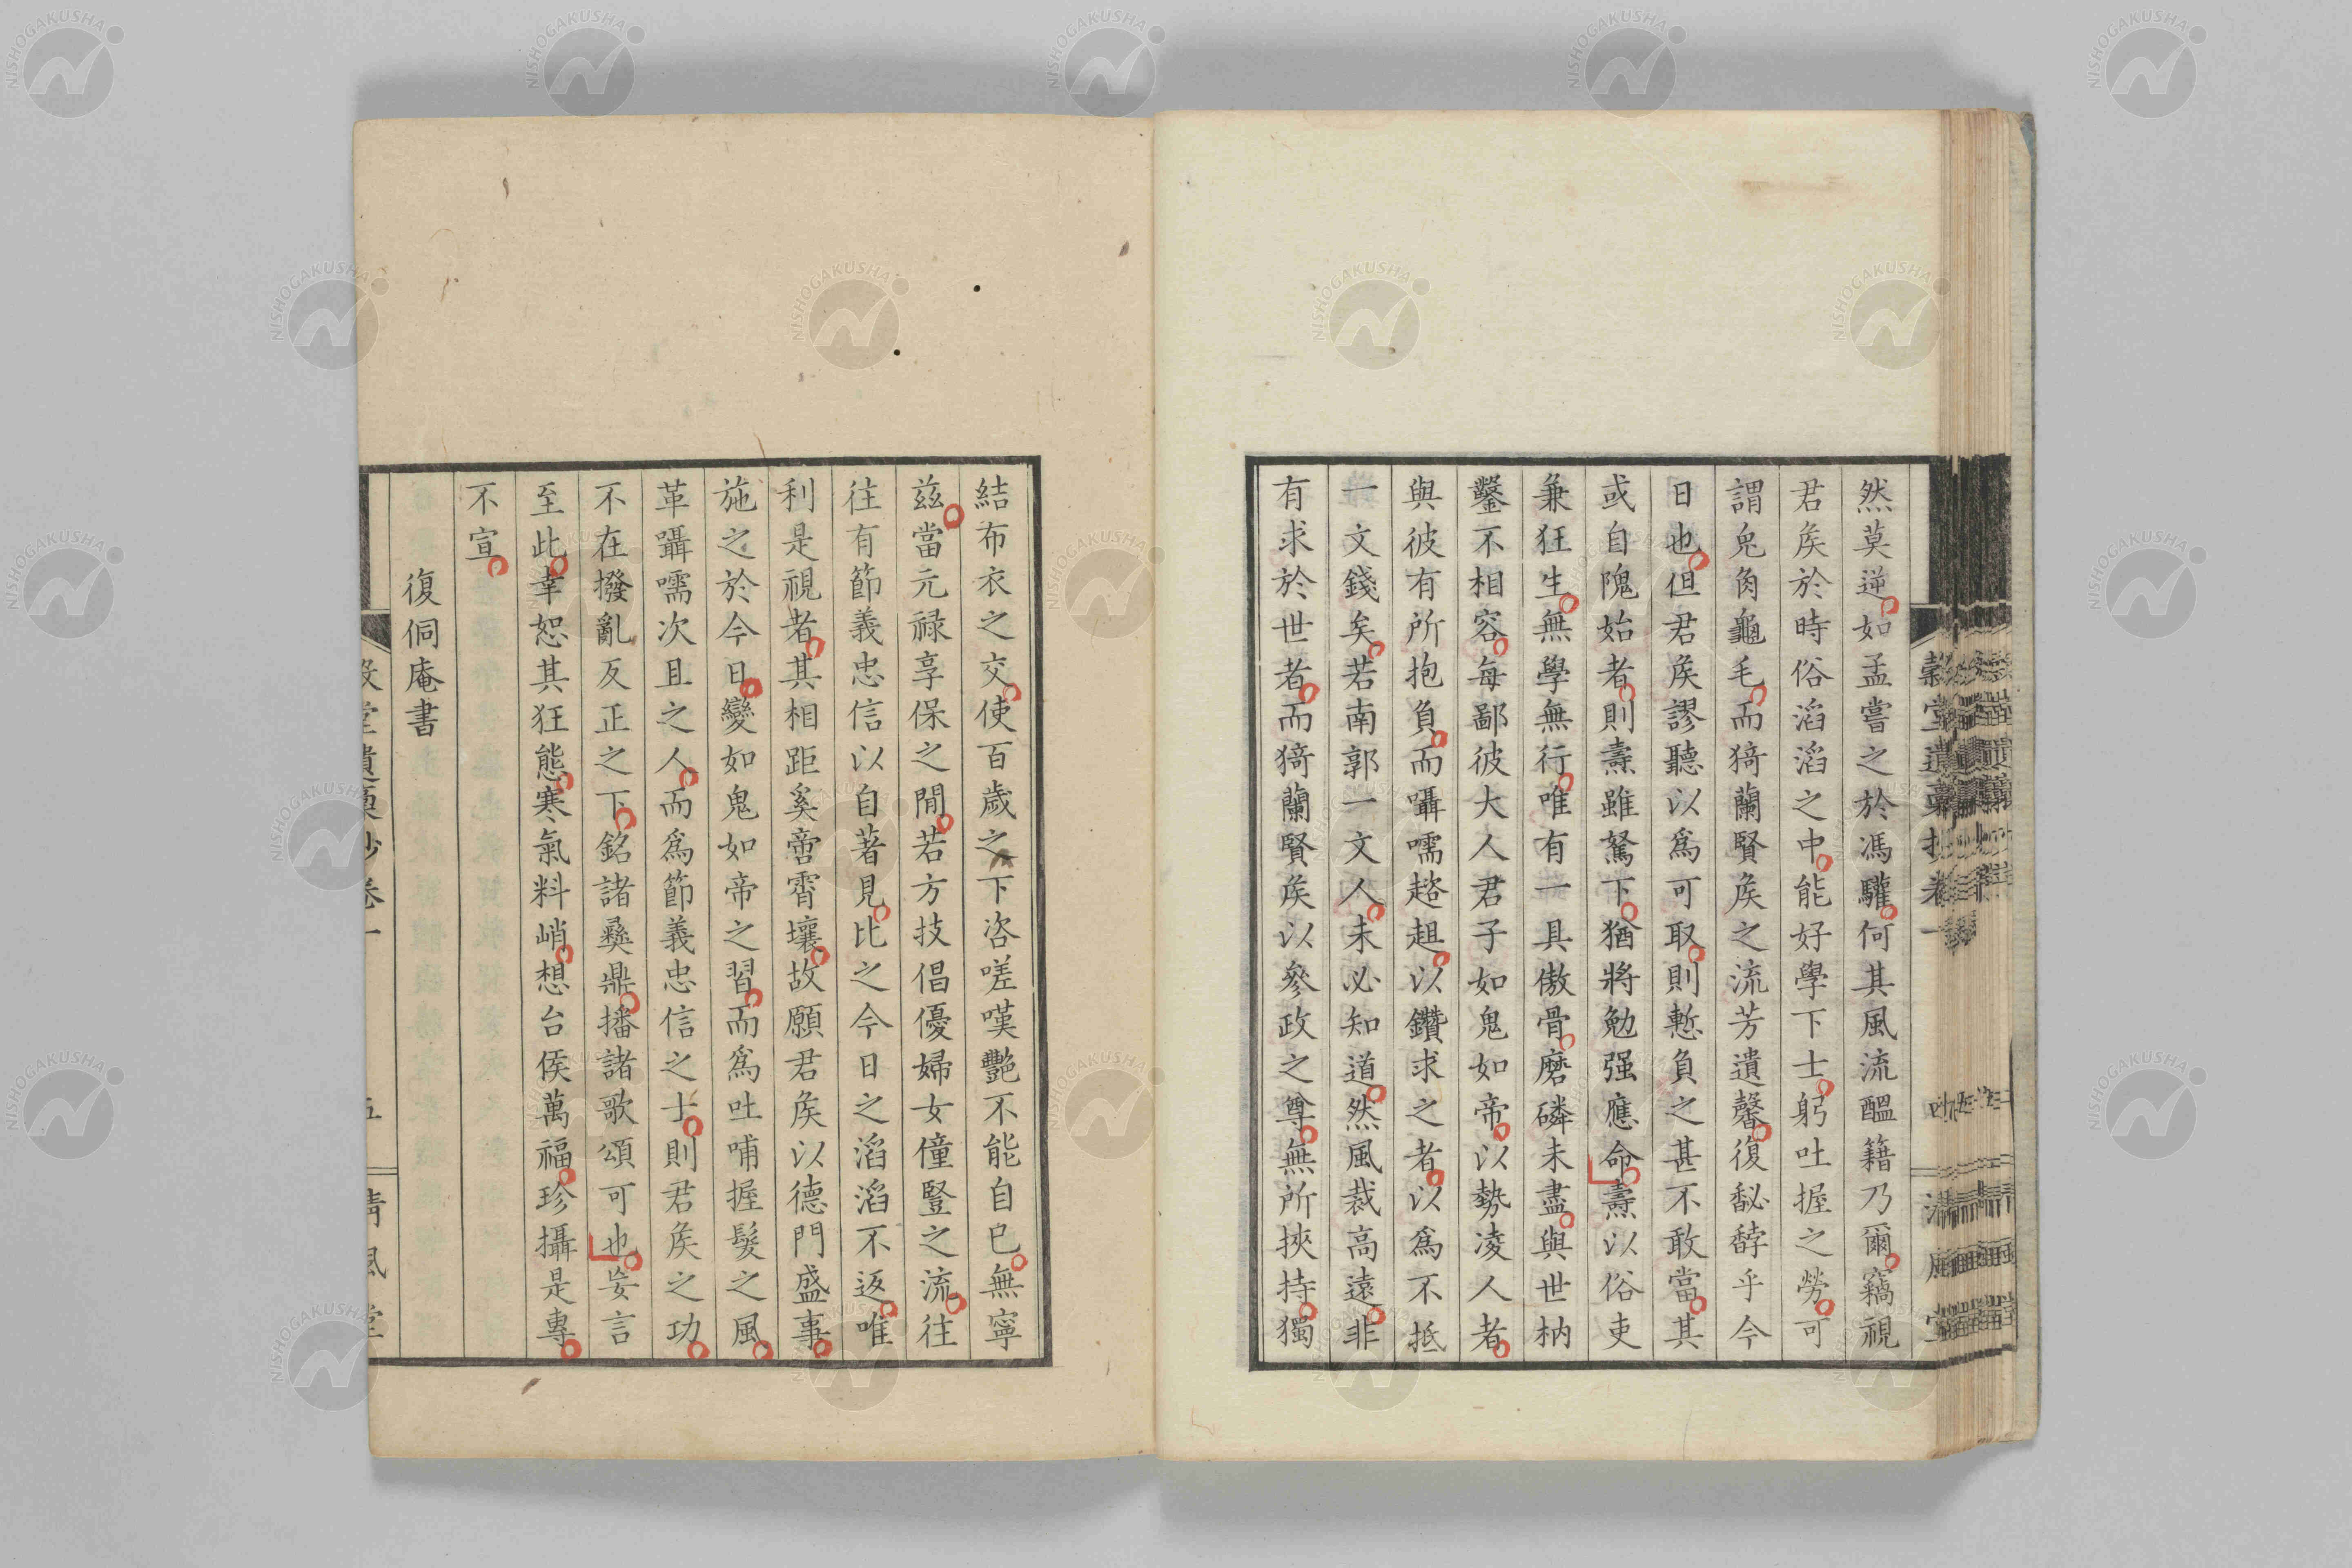 然莫逆如孟嘗之於馮驩何其風流醞籍乃爾竊視
君矦於時俗滔滔之中能好學下士躬吐握之勞可
謂兔角龜毛而猗蘭賢矦之流芳遺馨復馝馞乎今
日也但君矦謬聽以爲可取則慙負之甚不敢當其
或自隗始者則燾雖駑下猶將勉强應命燾以俗吏
兼狂生無學無行唯有一具傲骨磨磷未盡與世枘
鑿不相容每鄙彼大人君子如鬼如帝以勢凌人者
與彼有所抱負而囁嚅趦趄以鑽求之者以爲不抵
一文錢矣若南郭一文人未必知道然風裁高遠非
有求於世者而猗蘭賢矦以參政之尊無所挾持獨
結布衣之交使百歲之下咨嗟嘆艷不能自已無寧
茲當元禄享保之閒若方技倡優婦女僮豎之流往
往有節義忠信以自著見比之今日之滔滔不返唯
利是視者其相距奚啻霄壤故願君矦以德門盛事
施之於今日變如鬼如帝之習而爲吐哺握髮之風
革囁嚅次且之人而爲節義忠信之士則君矦之功
不在撥亂反正之下銘諸彝鼎播諸歌頌可也妄言
至此幸恕其狂態寒氣料峭想台侯萬福珍攝是專
不宣
復侗庵書
堂遺稾抄卷一
五
清風堂
NISHOGAKUSHA